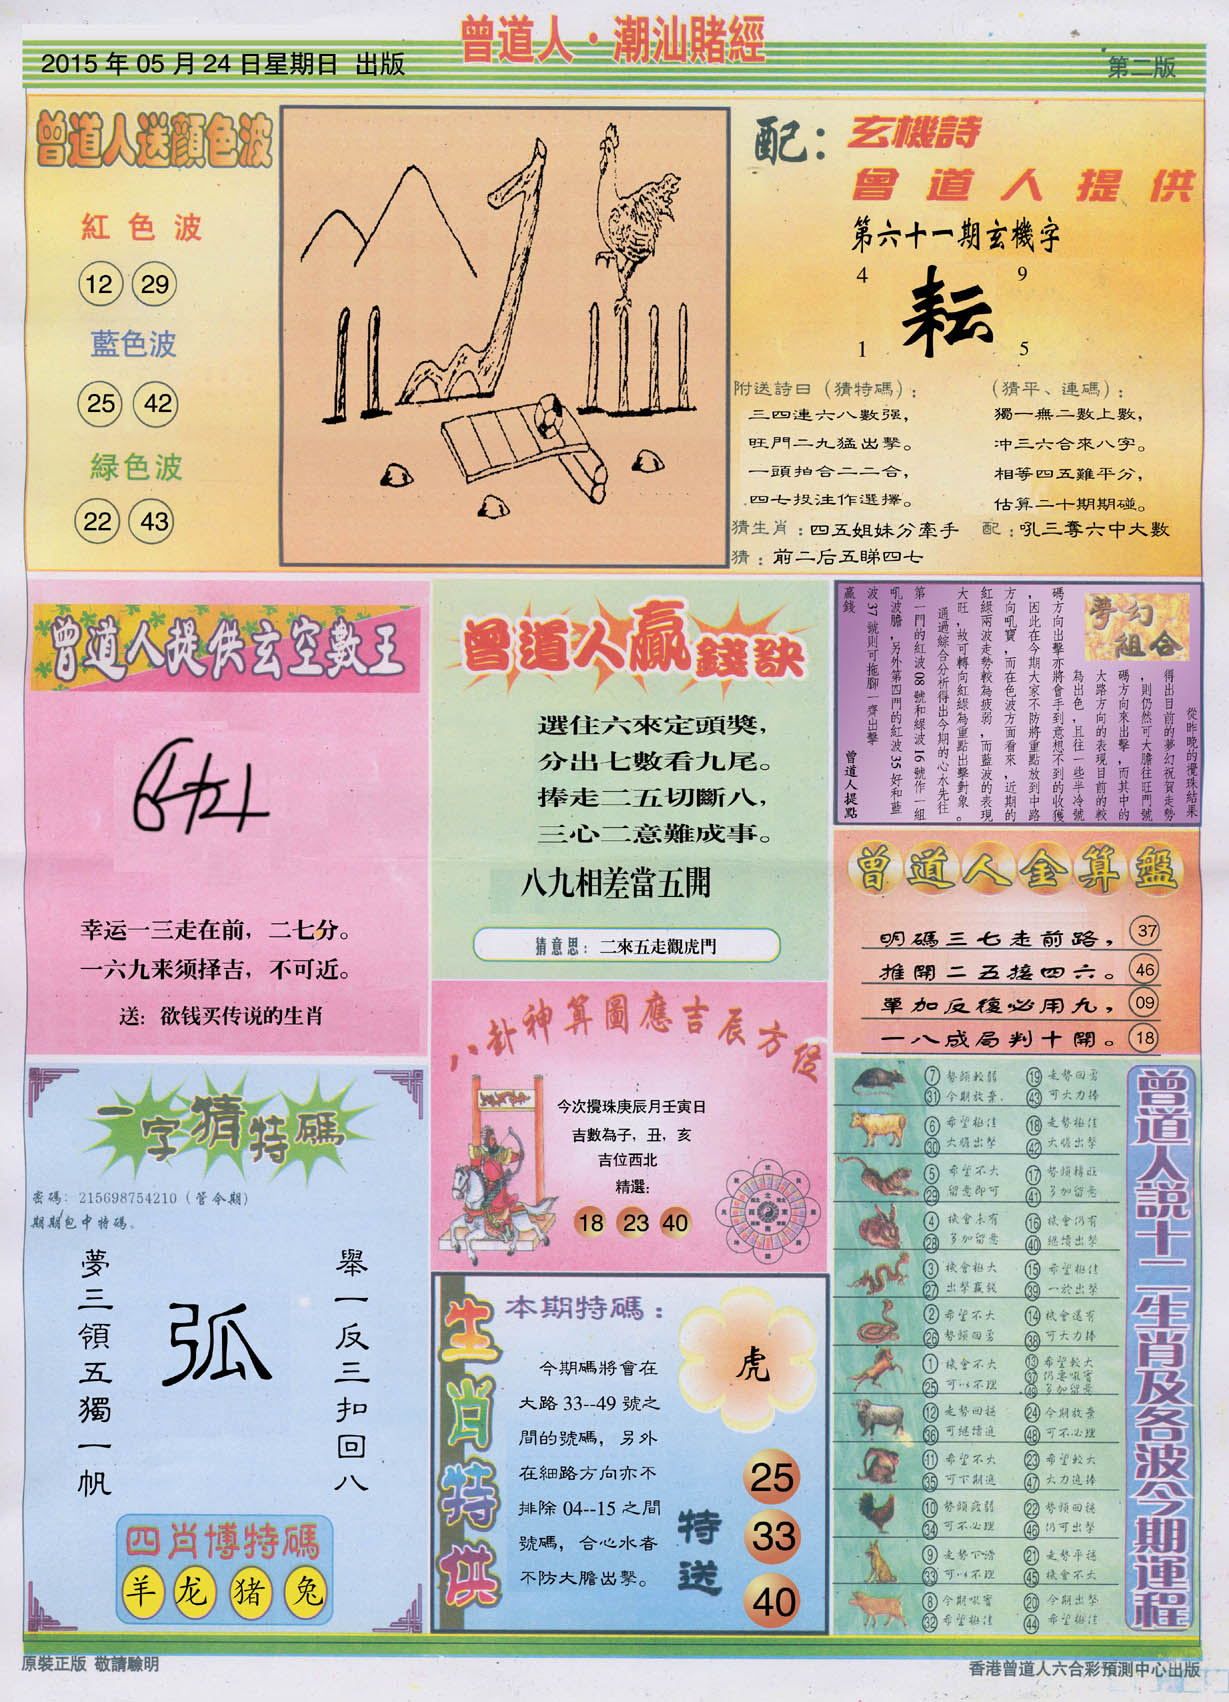 曾道人·潮汕賭經
2015年05月24日星期日 出版
第二版
曾道人送顏色波
紅色波
12 29
藍色波
25 42
緑色波
22 43
配：玄機詩
曾道人提供
第六十一期玄機字
4 9
耘
1 5
附送詩曰（猜特碼）：
三四連六八數强，
旺門二九猛出擊。
一頭拍合二二合，
四七投注作選擇。
（猜平、連碼）：
獨一無二數上數，
冲三六合來八字。
相等四五難平分，
估算二十期期碰。
猜生肖：四五姐妹分牽手
配：吼三奪六中大數
猜：前二后五睇四七
曾道人提供玄空數王
幸运一三走在前，二七分。
一六九来须择吉，不可近。
送：欲钱买传说的生肖
曾道人贏錢訣
選住六來定頭獎，
分出七數看九尾。
捧走二五切斷八，
三心二意難成事。
八九相差當五開
猜意思：二來五走觀虎門
夢幻組合
從昨晚的攪珠結果
得出目前的夢幻祝賀走勢
，則仍然可大膽往旺門號
碼方向來出擊，而其中的
大路方向的表現目前的較
為出色，且往一些半冷號
碼方向出擊亦將會手到意想不到的收獲
，因此在今期大家不防將重點放到中路
方向吼寶，而在色波方面看來，近期的
紅綠兩波走勢較為疲弱，而藍波的表現
大旺，故可轉向紅綠為重點出擊對象。
通過綜合分析得出今期的心水先往
第一門的紅波08號和綠波16號作一組
吼波膽，另外第四門的紅波35好和藍
波37號則可拖腳一齊出擊
贏錢
曾道人提點
曾道人金算盤
明碼三七走前路， 37
推開二五接四六。 46
單加反後必用九， 09
一八成局判十開。 18
八卦神算圖應吉辰方位
今次攪珠庚辰月壬寅日
吉數為子，丑，亥
吉位西北
精選：
18 23 40
一字猜特碼
密碼：215698754210（管令期）
期期包中特碼。
舉一反三扣回八
弧
夢三領五獨一帆
四肖博特碼
羊 龙 猪 兔
生肖特供
本期特碼：
虎
今期碼將會在
大路33--49號之
間的號碼，另外
在細路方向亦不
排除04--15之間
號碼，合心水者
不防大膽出擊。
特送
25
33
40
曾道人說十二生肖及各波今期運程
7 勢頭較弱 19 走勢回勇
31 今期放棄 43 可大力捧
6 希望極佳 18 走勢極佳
30 大膽出擊 42 大膽出擊
5 希望不大 17 勢頭轉旺
29 留意即可 41 多加留意
4 機會未有 16 機會仍有
28 多加留意 40 繼續出擊
3 機會極大 15 希望極佳
27 出擊贏錢 39 一於出擊
2 希望不大 14 機會還有
26 勢頭回勇 38 可大力捧
1 機會不大 13 希望較大
25 可以不理 37 仍要吼實
49 多加留意
12 走勢回穩 24 今期放棄
36 可繼續追 48 可不必理
11 希望不大 23 希望較大
35 可下期追 47 大力追捧
10 勢頭疲弱 22 勢頭回穩
34 可不必理 46 仍可出擊
9 走勢下滑 21 走勢平穩
33 可以不理 45 機會不大
8 今期吼實 20 今期出擊
32 希望極佳 44 希望極佳
原裝正版 敬請驗明
香港曾道人六合彩預測中心出版